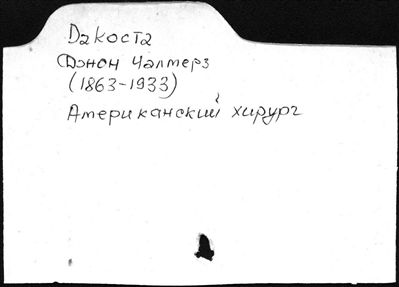 Дакоста
Джон Чалмерз
(1863-1933)
Американский хирург